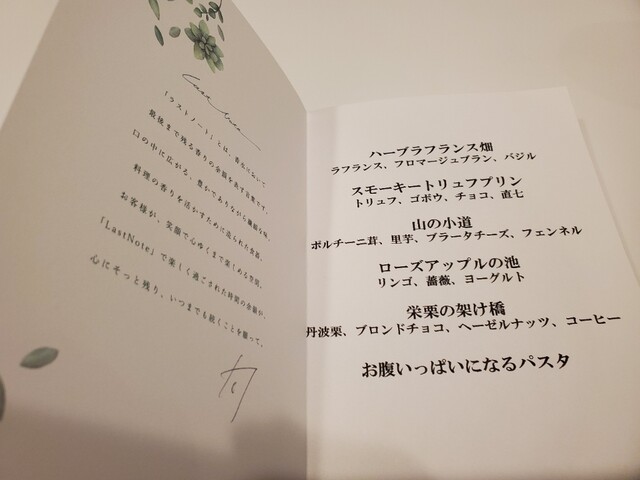 「ラストノート」とは、香水において
最後まで残る香りの余韻を表す言葉です。
口の中に広がる、豊かでありながら繊細な味。
料理の香りを活かすために造られた食器。
お客様が、笑顔で心ゆくまで楽しめる空間。
「LastNote」で楽しく過ごされた時間の余韻が、
心にそっと残り、いつまでも続くことを願って。
ハーブラフランス畑
ラフランス、フロマージュブラン、バジル
スモーキートリュフプリン
トリュフ、ゴボウ、チョコ、直七
山の小道
ポルチーニ茸、里芋、ブラータチーズ、フェンネル
ローズアップルの池
リンゴ、薔薇、ヨーグルト
栄栗の架け橋
丹波栗、ブロンドチョコ、ヘーゼルナッツ、コーヒー
お腹いっぱいになるパスタ